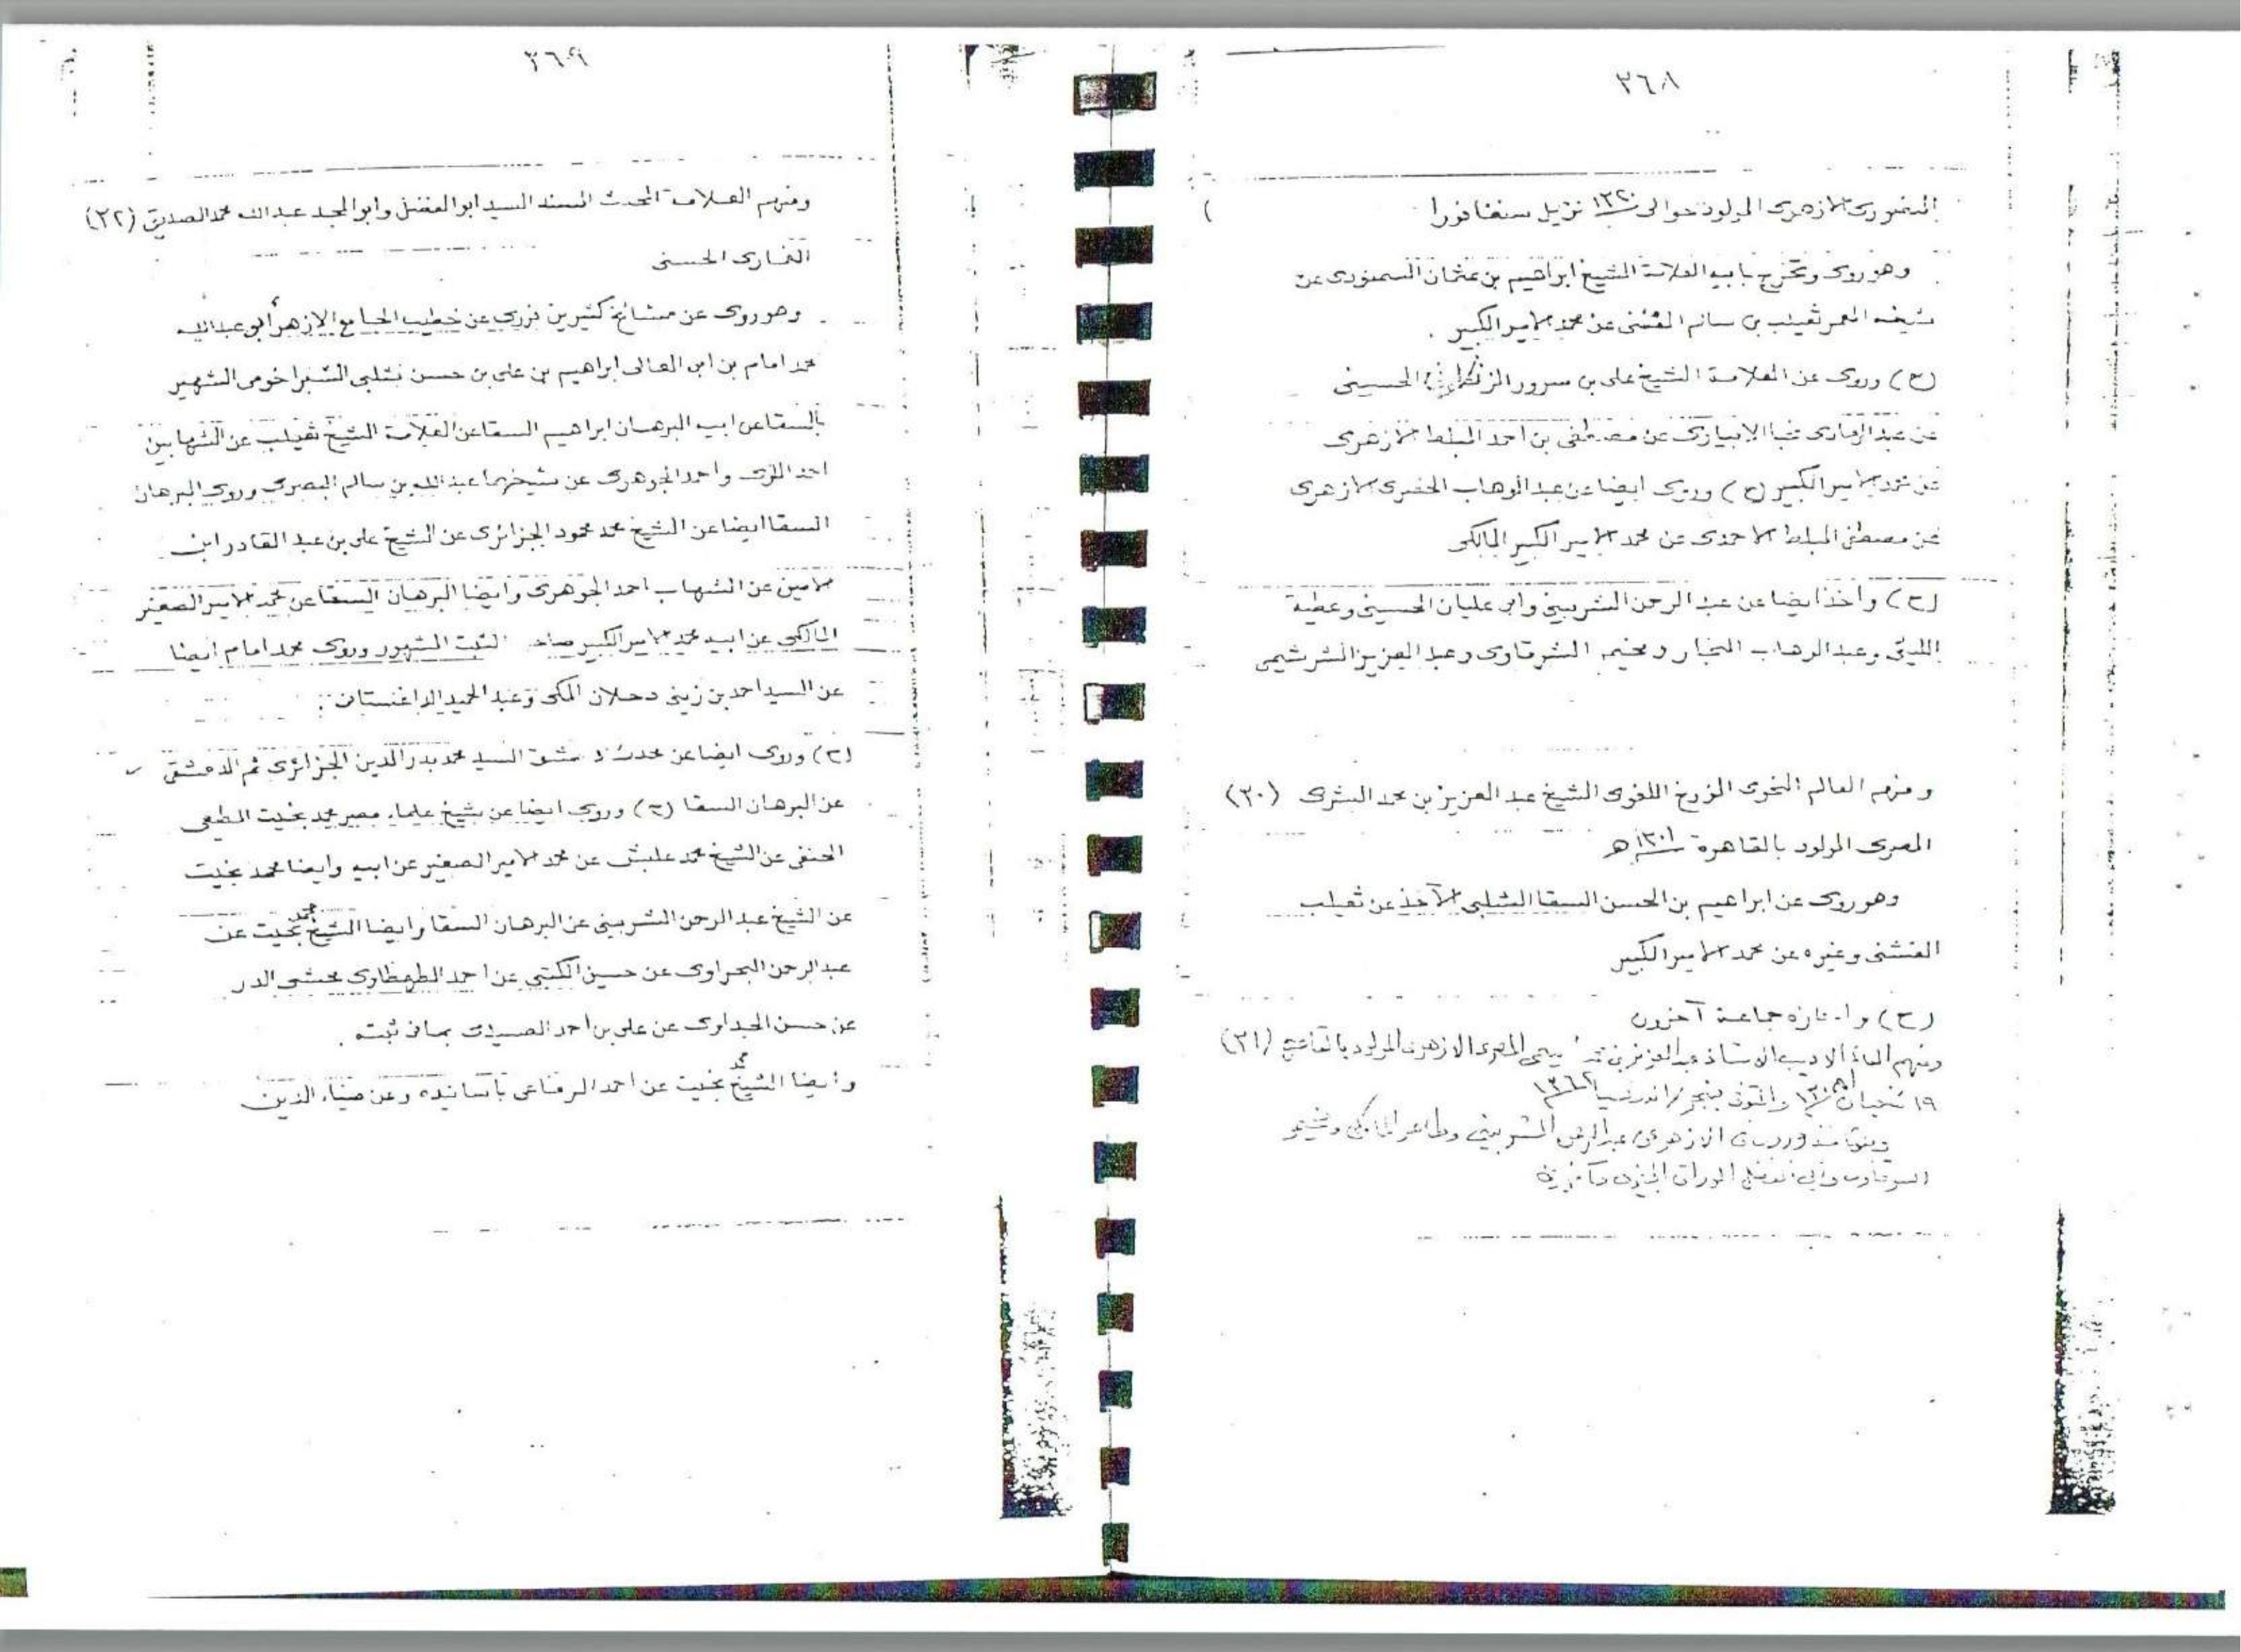 ٣٦٨
الازهرى المولود حوالى ١٣٢٠ نزيل سنغافورا
وهو روى وتخرج بابيه العلامة الشيخ ابراهيم بن عثمان السمنودى عن
شيخه المعمر ثعيلب بن سالم الفشنى عن محمد الامير الكبير .
(ح) وروى عن العلامة الشيخ على بن سرور الحسينى
عن عبد الهادى نجا الابيارى عن مصطفى بن احمد المبلط الازهرى
عن محمد الامير الكبير (ح) وروى ايضا عن عبد الوهاب الخضرى الازهرى
عن مصطفى المبلط الاحمدى عن محمد الامير الكبير المالكى
(ح) وأخذ ايضا عن عبد الرحمن الشربينى وابى عليان الحسينى وعطية
الليثى وعبد الوهاب النجار ومخيمر الشرقاوى وعبد العزيز الشرشيمى
ومنهم العالم النحوى المؤرخ اللغوى الشيخ عبد العزيز بن محمد البشرى (٣٠)
المصرى المولود بالقاهرة ١٣٠١ هـ
وهو روى عن ابراهيم بن الحسن السقا الشلبى الآخذ عن ثعيلب
الفشنى وغيره عن محمد الامير الكبير
(ح) واجازه جماعة آخرون
ومنهم الاديب الاستاذ عبد العزيز بن يحيى المصرى الازهرى المولود بالقاهرة (٣١)
١٩ شعبان والمتوفى ١٣٦٢
الازهرى عبد الرحمن الشربينى وطاهر
الوراق الجيزى
٣٦٩
ومنهم العلامة المحدث المسند السيد ابو الفضل وابو المجد عبد الله محمد الصديق (٣٢)
الغمارى الحسنى
وهو روى عن مشائخ كثيرين نزوى عن خطيب الجامع الازهر أبو عبد الله
محمد امام بن ابى المعالى ابراهيم بن على بن حسن شلبى الشبراخومى الشهير
بالسقا عن ابيه البرهان ابراهيم السقا عن العلامة الشيخ ثعيلب عن الشهابين
احمد الملوى واحمد الجوهرى عن شيخهما عبد الله بن سالم البصرى وروى البرهان
السقا ايضا عن الشيخ محمد محمود الجزائرى عن الشيخ على بن عبد القادر ابن
الامين عن الشهاب احمد الجوهرى وايضا البرهان السقا عن محمد الامير الصغير
المالكى عن ابيه محمد الامير الكبير صاحب الثبت المشهور وروى محمد امام ايضا
عن السيد احمد بن زينى دحلان المكى وعبد الحميد الداغستانى .
(ح) وروى ايضا عن محدث دمشق السيد محمد بدر الدين الجزائرى ثم الدمشقى
عن البرهان السقا (ح) وروى ايضا عن شيخ علماء مصر محمد بخيت المطيعى
الحنفى عن الشيخ محمد عليش عن محمد الامير الصغير عن ابيه وايضا محمد بخيت
عن الشيخ عبد الرحمن الشربينى عن البرهان السقا وايضا الشيخ محمد بخيت عن
عبد الرحمن البحراوى عن حسين الكتبى عن احمد الطهطاوى محشى الدر
عن حسن الجداوى عن على بن احمد الصعيدى بما فى ثبته .
وأيضا الشيخ محمد بخيت عن احمد الرفاعى بأسانيده وعن ضياء الدين